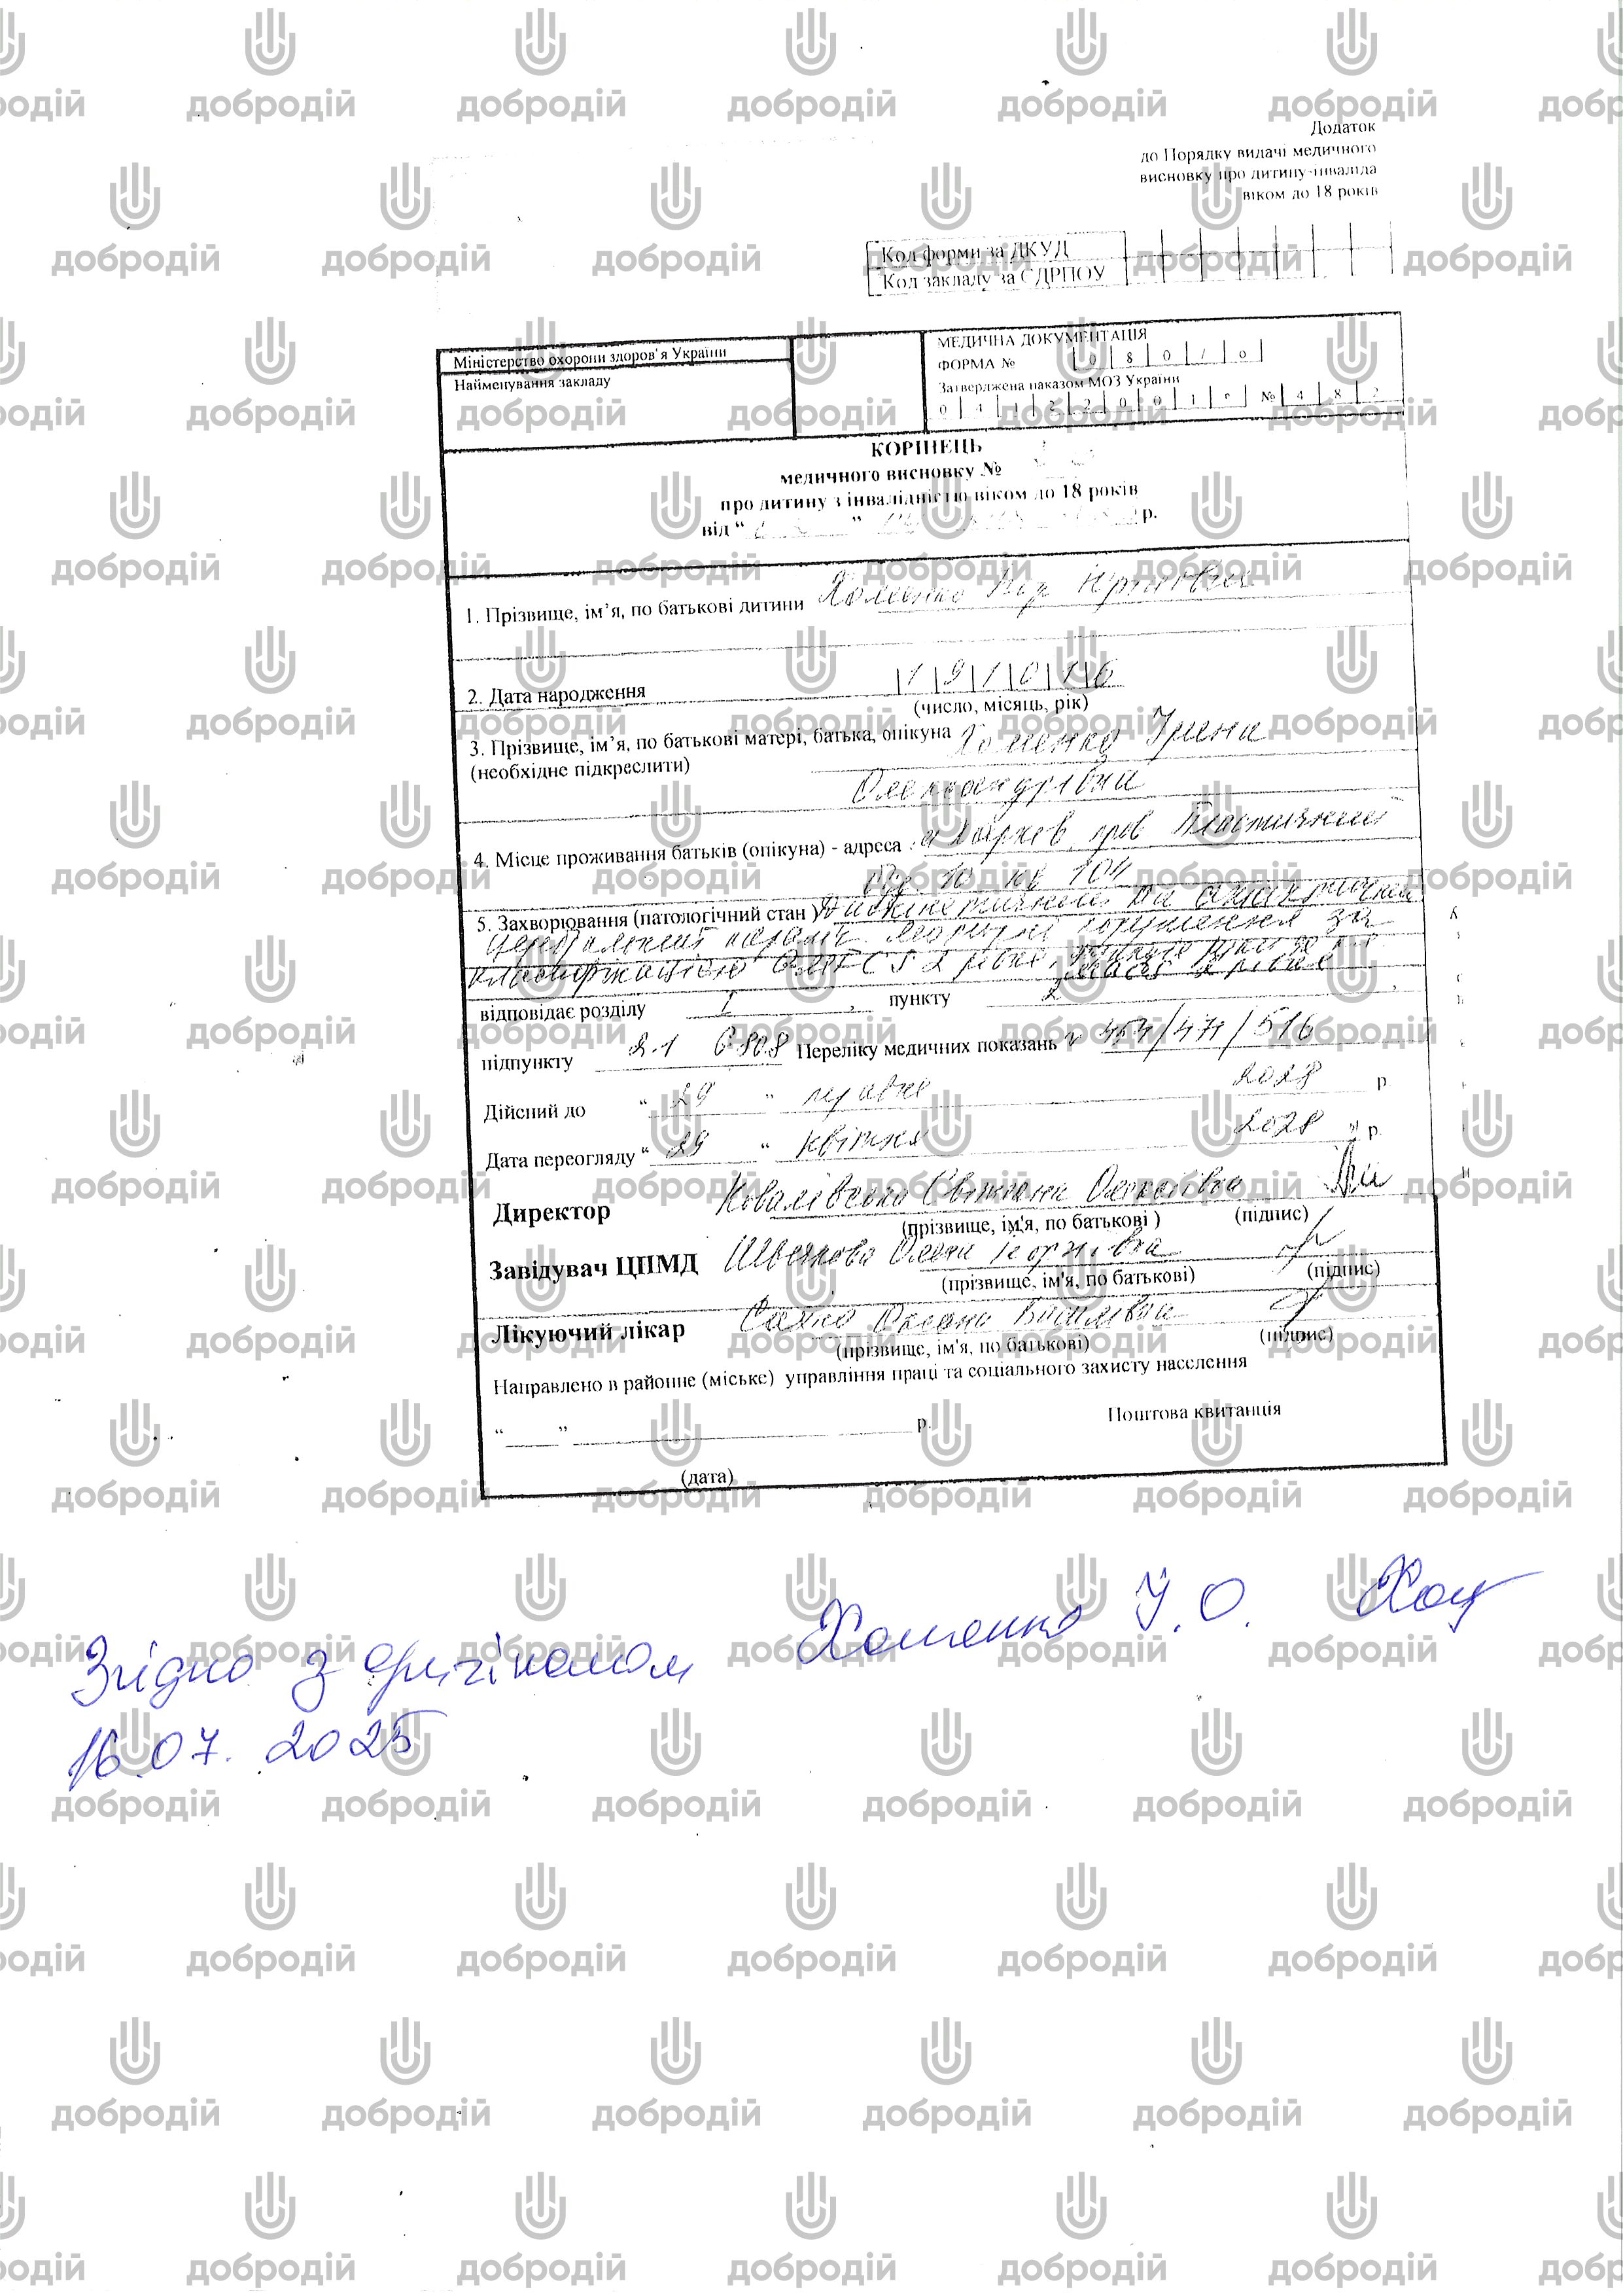 Додаток
до Порядку видачі медичного
висновку про дитину-інваліда
віком до 18 років
Код форми за ДКУД
Код закладу за ЄДРПОУ
Міністерство охорони здоров'я України
Найменування закладу
МЕДИЧНА ДОКУМЕНТАЦІЯ
ФОРМА № 0 8 0 / о
Затверджена наказом МОЗ України
0 4 1 2 2 0 0 1 р № 4 8 2
КОРІНЕЦЬ
медичного висновку №
про дитину з інвалідністю віком до 18 років
від “ ” р.
1. Прізвище, ім’я, по батькові дитини Хоменко
2. Дата народження 1 9 1 0 1 6
(число, місяць, рік)
3. Прізвище, ім’я, по батькові матері, батька, опікуна Хоменко Ірина
(необхідне підкреслити)
Олександрівна
4. Місце проживання батьків (опікуна) - адреса : м Харків пров Пластичний
буд. 10 кв 104
5. Захворювання (патологічний стан) Дискінетичний та
церебральний параліч. Моторні порушення за
класифікацією GMFCS 2 рівня, функція руки
MACS 2 рівня
відповідає розділу I , пункту 2 ,
підпункту 2.1 G 80.8 Переліку медичних показань № 454/471/516
Дійсний до “ 29 “ травня 2028 р
Дата переогляду “ 29 “ квітня 2028 р.
Директор Світлана
(прізвище, ім'я, по батькові ) (підпис)
Завідувач ЦПМД Олена
(прізвище, ім'я, по батькові) (підпис)
Лікуючий лікар Оксана Василівна
(прізвище, ім'я, по батькові) (підпис)
Направлено в районне (міське) управління праці та соціального захисту населення
“ ” р. Поштова квитанція
(дата)
Згідно з оригіналом Хоменко І.О.
16.07.2025
добродій